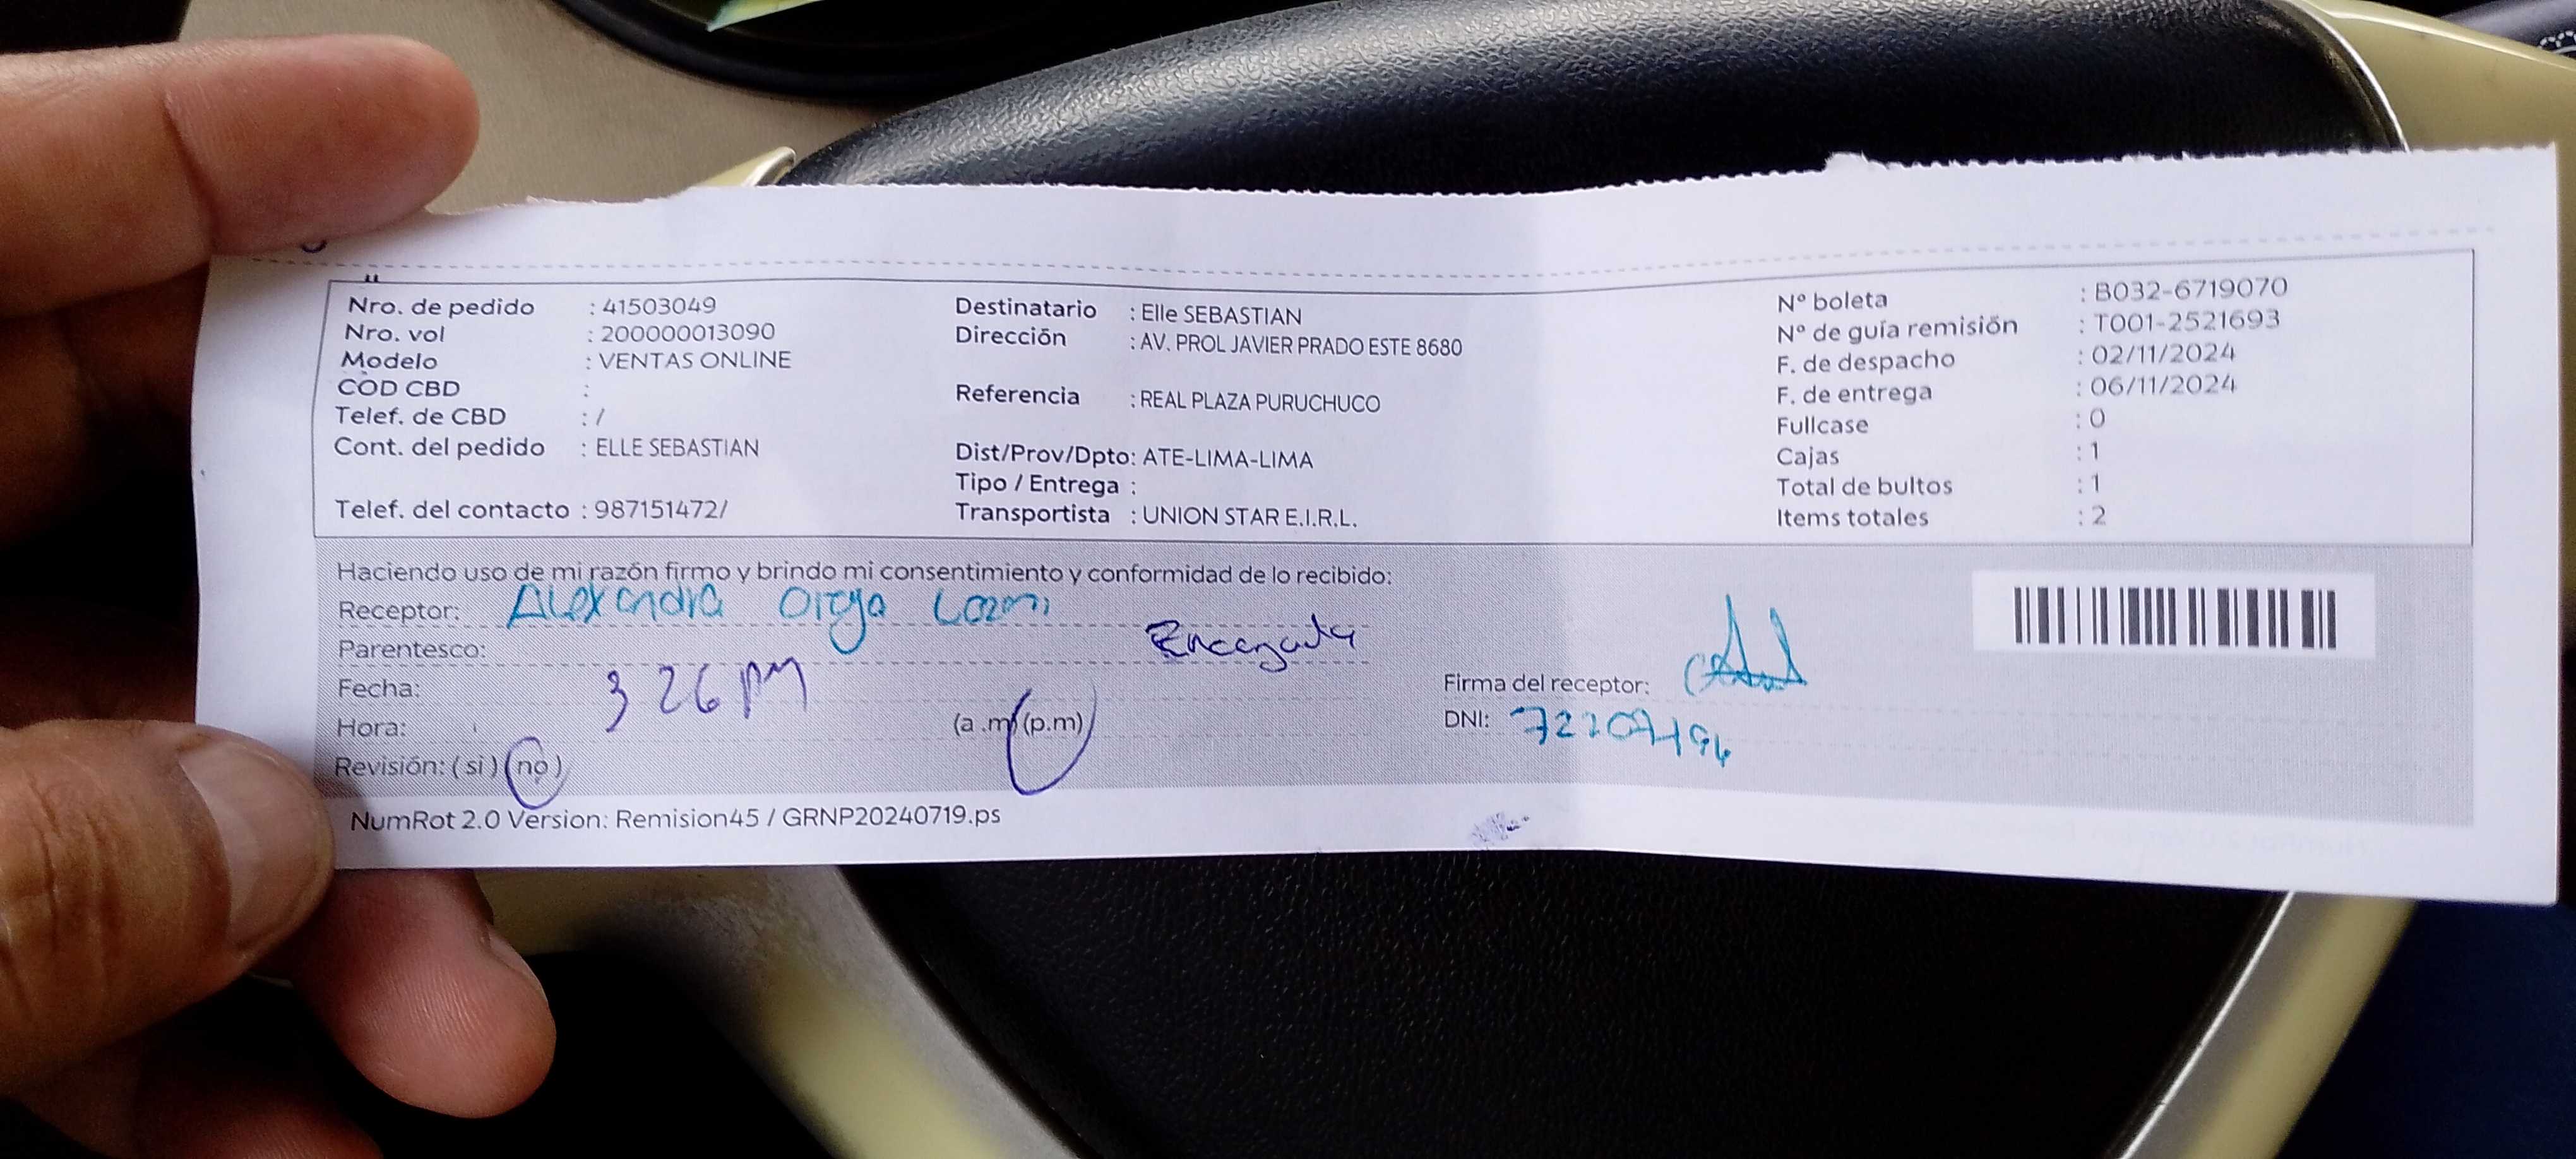 Nro. de pedido : 41503049
Nro. vol : 200000013090
Modelo : VENTAS ONLINE
COD CBD :
Telef. de CBD : /
Cont. del pedido : ELLE SEBASTIAN
Telef. del contacto : 987151472/
Destinatario : Elle SEBASTIAN
Dirección : AV. PROL JAVIER PRADO ESTE 8680
Referencia : REAL PLAZA PURUCHUCO
Dist/Prov/Dpto: ATE-LIMA-LIMA
Tipo / Entrega :
Transportista : UNION STAR E.I.R.L.
Nº boleta : B032-6719070
Nº de guía remisión : T001-2521693
F. de despacho : 02/11/2024
F. de entrega : 06/11/2024
Fullcase : 0
Cajas : 1
Total de bultos : 1
Items totales : 2
Haciendo uso de mi razón firmo y brindo mi consentimiento y conformidad de lo recibido:
Receptor: Alexandra
Parentesco:
Fecha: 3 26 pm
Hora: (a .m) (p.m)
Revisión: ( si ) (no )
Firma del receptor:
DNI:
NumRot 2.0 Version: Remision45 / GRNP20240719.ps